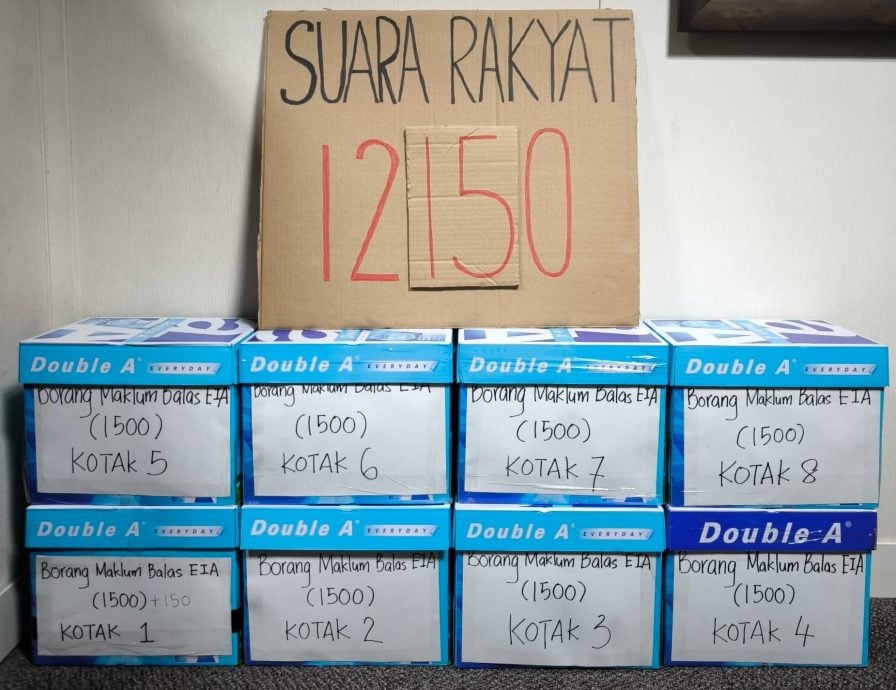 SUARA RAKYAT
12150
Double A EVERYDAY
Borang Maklum Balas EIA
(1500)
KOTAK 5
Double A EVERYDAY
Borang Maklum Balas EIA
(1500)
KOTAK 6
Double A EVERYDAY
Borang Maklum Balas EIA
(1500)
KOTAK 7
Double A EVERYDAY
Borang Maklum Balas EIA
(1500)
KOTAK 8
Double A EVERYDAY
Borang Maklum Balas EIA
(1500) +150
KOTAK 1
Double A EVERYDAY
Borang Maklum Balas EIA
(1500)
KOTAK 2
Double A EVERYDAY
Borang Maklum Balas EIA
(1500)
KOTAK 3
Double A®
Borang Maklum Balas EIA
(1500)
KOTAK 4